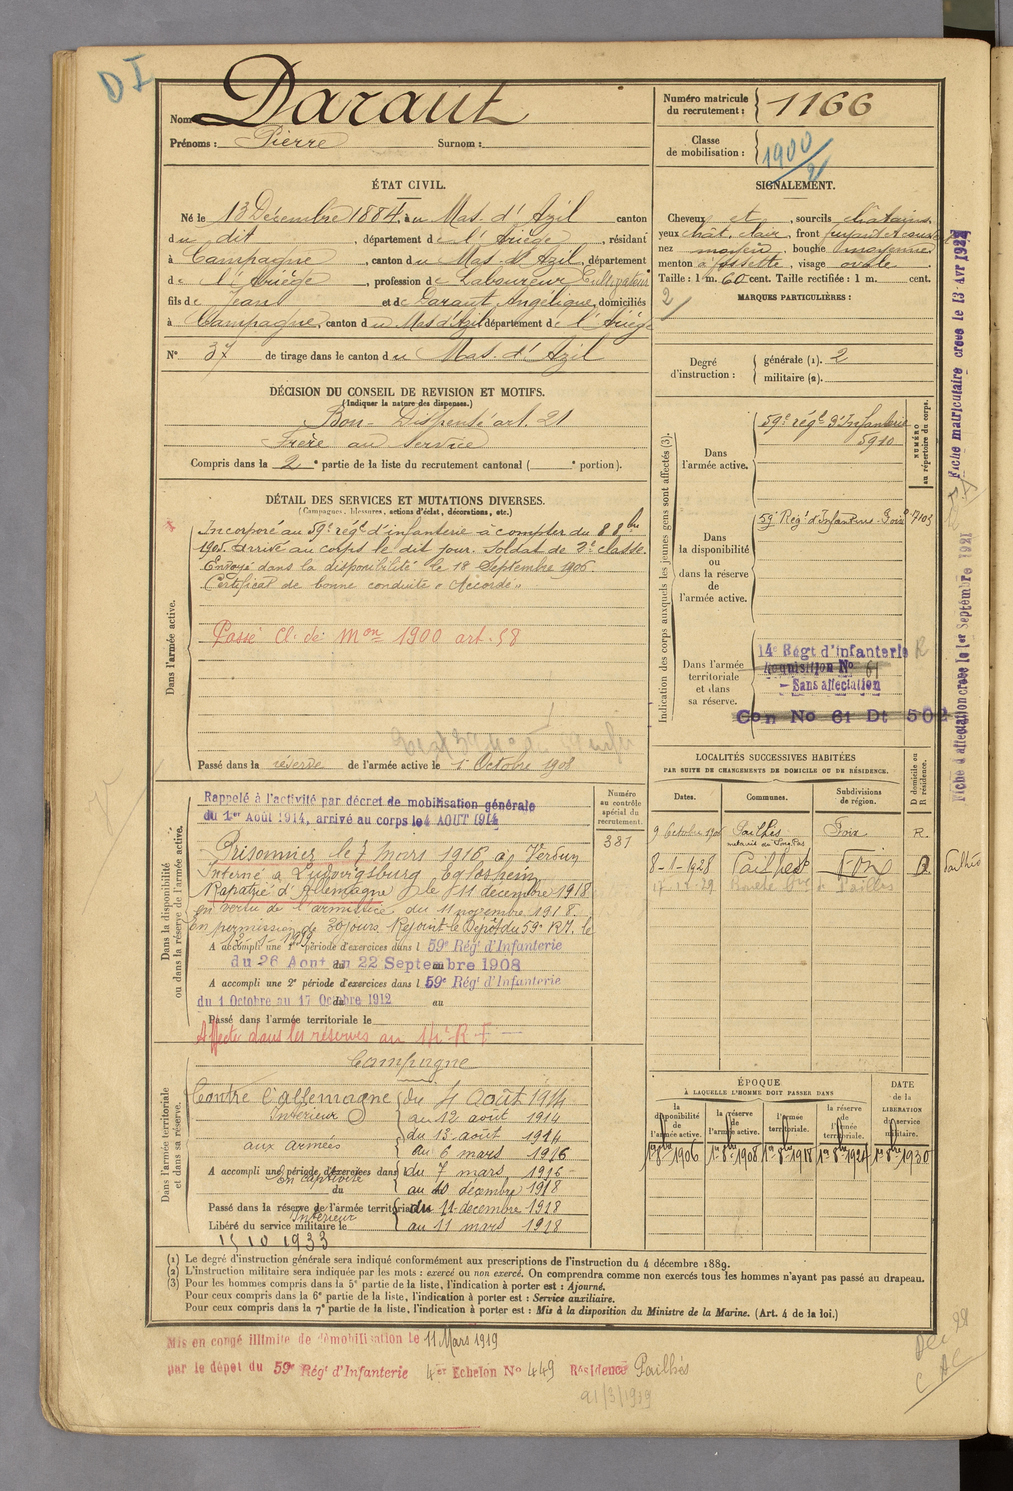 DI
Nom Daraut
Prénoms : Pierre Surnom :
Numéro matricule du recrutement : 1166
Classe de mobilisation : 1900/21
ÉTAT CIVIL.
Né le 13 Décembre 1884, au Mas-d'Azil canton
du dit, département de l'Ariège, résidant
à Campagne, canton du Mas-d'Azil, département
de l'Ariège, profession de Laboureur Cultivateur
fils de Jean et de Daraut Angélique, domiciliés
à Campagne, canton du Mas d'Azil département de l'Ariège
N° 37 de tirage dans le canton du Mas-d'Azil
SIGNALEMENT.
Cheveux et, sourcils châtains
yeux chât. clair, front fuyant et
nez moyen, bouche moyenne
menton à fossette, visage ovale.
Taille : 1 m. 60 cent. Taille rectifiée : 1 m. cent.
2/
MARQUES PARTICULIÈRES :
Degré d'instruction : générale (1). 2
militaire (2).
DÉCISION DU CONSEIL DE REVISION ET MOTIFS.
(Indiquer la nature des dispenses.)
Bon - Dispensé art. 21
Frère au service
Compris dans la 2e partie de la liste du recrutement cantonal ( e portion).
DÉTAIL DES SERVICES ET MUTATIONS DIVERSES.
(Campagnes, blessures, actions d'éclat, décorations, etc.)
Dans l'armée active.
Incorporé au 59e régt d'infanterie à compter du 8 8bre
1905. Arrivé au corps le dit jour. Soldat de 2e classe.
Envoyé dans la disponibilité le 18 Septembre 1906.
Certificat de bonne conduite « Accordé »
Passé Cl. de Mon 1900 art. 58
Passé dans la réserve de l'armée active le 1 Octobre 1908
Indication des corps auxquels les jeunes gens sont affectés (3).
NUMÉRO au répertoire du corps.
Dans l'armée active.
59e régt d'Infanterie
5910
Dans la disponibilité ou dans la réserve de l'armée active.
59 Régt d'Infanterie Foix 7103
Dans l'armée territoriale et dans sa réserve.
14e Régt d'infanterie R
Réquisition No 61
- Sans affectation
Con No 61 Dt 502
Fiche matriculaire créée le 13 Avr 1922
Fiche d'affectation créée le 1er Septembre 1921
Dans la disponibilité ou dans la réserve de l'armée active.
Numéro au contrôle spécial du recrutement.
381
Rappelé à l'activité par décret de mobilisation générale
du 1er Août 1914, arrivé au corps le 4 AOUT 1914
Prisonnier le 7 mars 1916 à Verdun
Interné à Ludwigsburg Eglosheim
Rapatrié d'Allemagne le 11 décembre 1918
en vertu de l'armistice du 11 novembre 1918.
En permission de 30 jours. Rejoint le Dépôt du 59e R.I. le
A accompli une 1re période d'exercices dans l 59e Régt d'Infanterie
du 26 Aout au 22 Septembre 1908
A accompli une 2e période d'exercices dans l 59e Régt d'Infanterie
du 1 Octobre au 17 Octobre 1912 au
Passé dans l'armée territoriale le
Affecté dans les réserves au 14e R.I.
LOCALITÉS SUCCESSIVES HABITÉES
PAR SUITE DE CHANGEMENTS DE DOMICILE OU DE RÉSIDENCE.
Dates. Communes. Subdivisions de région. D domicile ou R résidence.
9 Octobre 1906 Pailhès Foix R.
8-1-1928 Pailhès Foix D Pailhès
Dans l'armée territoriale et dans sa réserve.
Campagne
Contre l'Allemagne du 4 Août 1914
Intérieur au 12 août 1914
aux armées du 13 août 1914
au 6 mars 1916
A accompli une période d'exercices dans l du 7 mars 1916
En captivité
du au 10 décembre 1918
Passé dans la réserve de l'armée territoriale le du 11 décembre 1918
Intérieur
Libéré du service militaire le au 11 mars 1918
15 10 1933
ÉPOQUE
À LAQUELLE L'HOMME DOIT PASSER DANS
DATE de la LIBÉRATION du service militaire.
la disponibilité de l'armée active. la réserve de l'armée active. l'armée territoriale. la réserve de l'armée territoriale.
1er 8bre 1906 1er 8bre 1908 1er 8bre 1918 1er 8bre 1924 1er 8bre 1930
(1) Le degré d'instruction générale sera indiqué conformément aux prescriptions de l'instruction du 4 décembre 1889.
(2) L'instruction militaire sera indiquée par les mots : exercé ou non exercé. On comprendra comme non exercés tous les hommes n'ayant pas passé au drapeau.
(3) Pour les hommes compris dans la 5e partie de la liste, l'indication à porter est : Ajourné.
Pour ceux compris dans la 6e partie de la liste, l'indication à porter est : Service auxiliaire.
Pour ceux compris dans la 7e partie de la liste, l'indication à porter est : Mis à la disposition du Ministre de la Marine. (Art. 4 de la loi.)
Mis en congé illimité de démobilisation le 11 Mars 1919
par le dépôt du 59e Régt d'Infanterie 4er Echelon No 449 Résidence Pailhès
21/3/1919